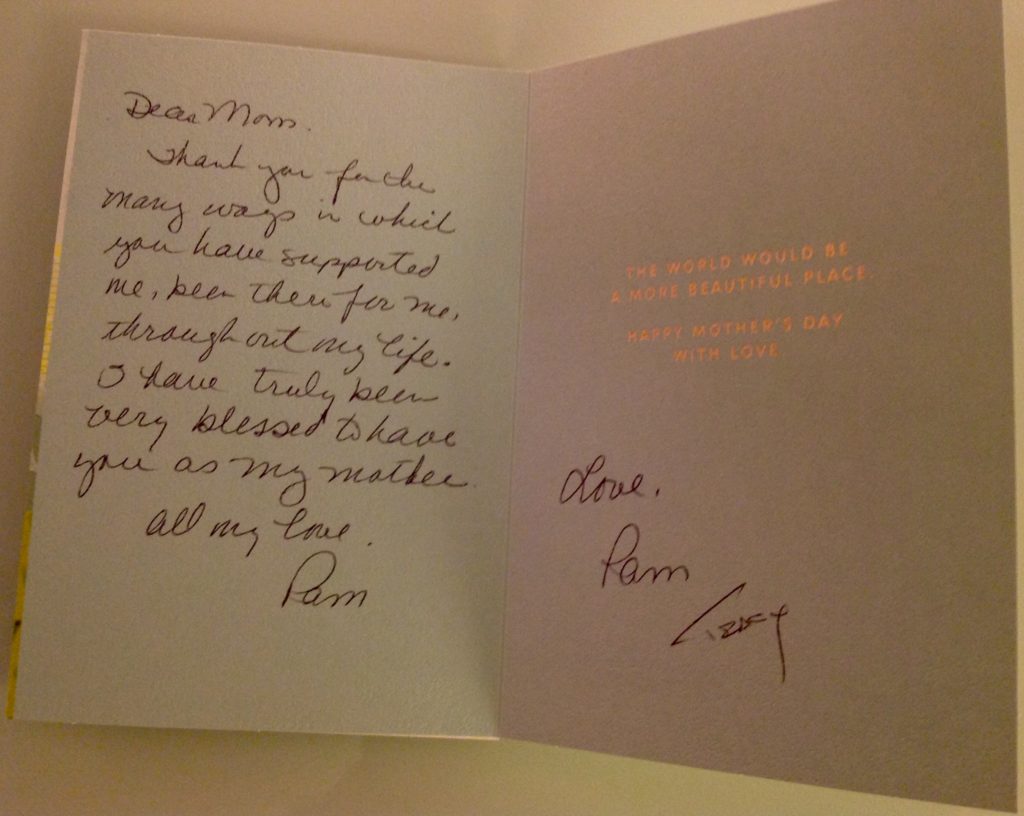 Dear Mom.
Thank you for the
many ways in which
you have supported
me, been there for me,
throughout my life.
I have truly been
very blessed to have
you as my mother.
All my love.
Pam
THE WORLD WOULD BE
A MORE BEAUTIFUL PLACE.
HAPPY MOTHER'S DAY
WITH LOVE
Love,
Pam